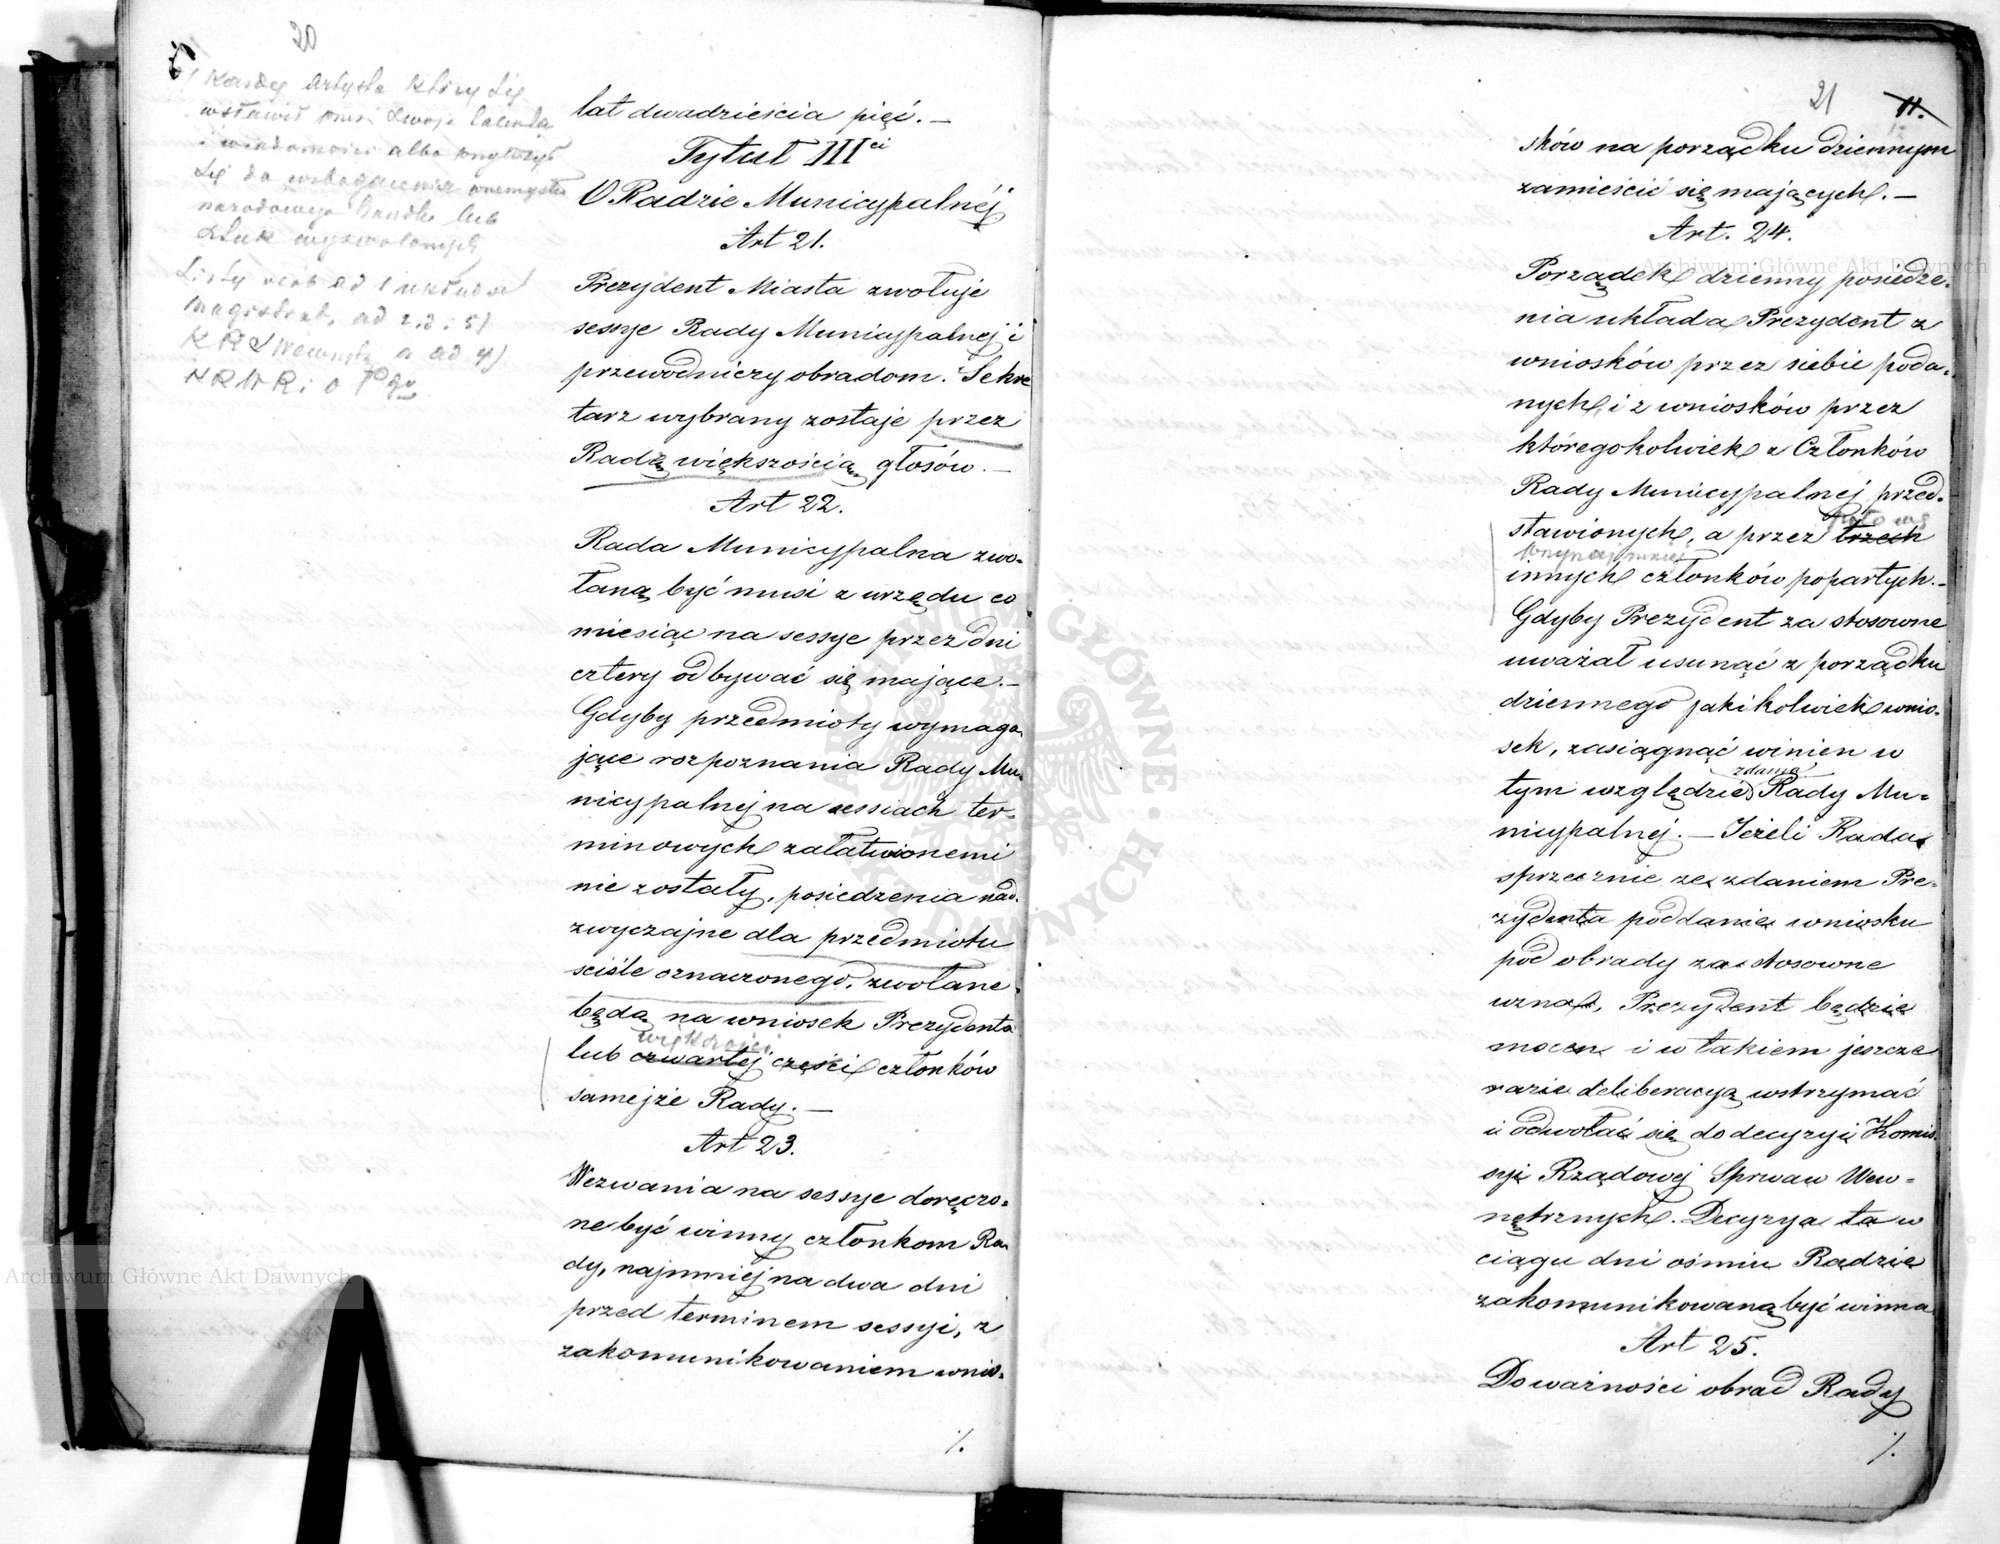 20
5/ Każdy Artysta który się
wsławił przez swoje talenta
i wiadomości albo przyłożył
się do wzbogacenia przemysłu
narodowego Handlu lub
sztuk wyzwolonych
Listy osób ad 1 układa
Magistrat, ad 2, 3 i 5)
a ad 4)
lat dwadzieścia pięć. —
Tytuł III ci
O Radzie Municypalnéj
Art 21.
Prezydent Miasta zwołuje
sessye Rady Municypalnej i
przewodniczy obradom. Sekre
tarz wybrany zostaje przez
Radę większością głosów. —
Art 22.
Rada Municypalna zwo-
łaną być musi z urzędu co
miesiąc na sessye przez dni
cztery odbywać się mające. —
Gdyby przedmioty wymaga
jące rozpoznania Rady Mu-
nicypalnej na sessiach ter-
minowych załatwionemi
nie zostały, posiedzenia nad-
zwyczajne dla przedmiotu
ściśle oznaczonego, zwołane
będą na wniosek Prezydenta
większości
lub czwartej części członków
samejże Rady. —
Art 23.
Wezwania na sessye doręczo-
ne być winny członkom Ra
dy, najmniej na dwa dni
przed terminem sessyi, z
zakomunikowaniem wnio-
/.
21 11.
sków na porządku dziennym
zamieścić się mających. —
Art. 24.
Porządek dzienny posiedze-
nia układa Prezydent z
wniosków przez siebie poda-
nych, i z wniosków przez
któregokolwiek z Członków
Rady Municypalnej przed-
połowę
stawionych, a przez trzech
przynajmniej
innych członków popartych. —
Gdyby Prezydent za stosowne
uważał usunąć z porządku
dziennego jakikolwiek wnio-
sek, zasiągnąć winien w
zdania
tym względzie Rady Mu-
nicypalnej. — Jeżeli Rada
sprzecznie ze zdaniem Pre-
zydenta poddanie wniosku
pod obrady za stosowne
uzna, Prezydent będzie
mocen i w takiem jeszcze
razie deliberacyą wstrzymać
i odwołać się do decyzyi Komis
syi Rządowej Sprwaw Wew-
nętrznych. Decyzya ta w
ciągu dni ośmiu Radzie
zakomunikowaną być winna
Art 25.
Do ważności obrad Rady
/.
Archiwum Główne Akt Dawnych
Archiwum Główne Akt Dawnych
ARCHIWUM GŁÓWNE AKT DAWNYCH